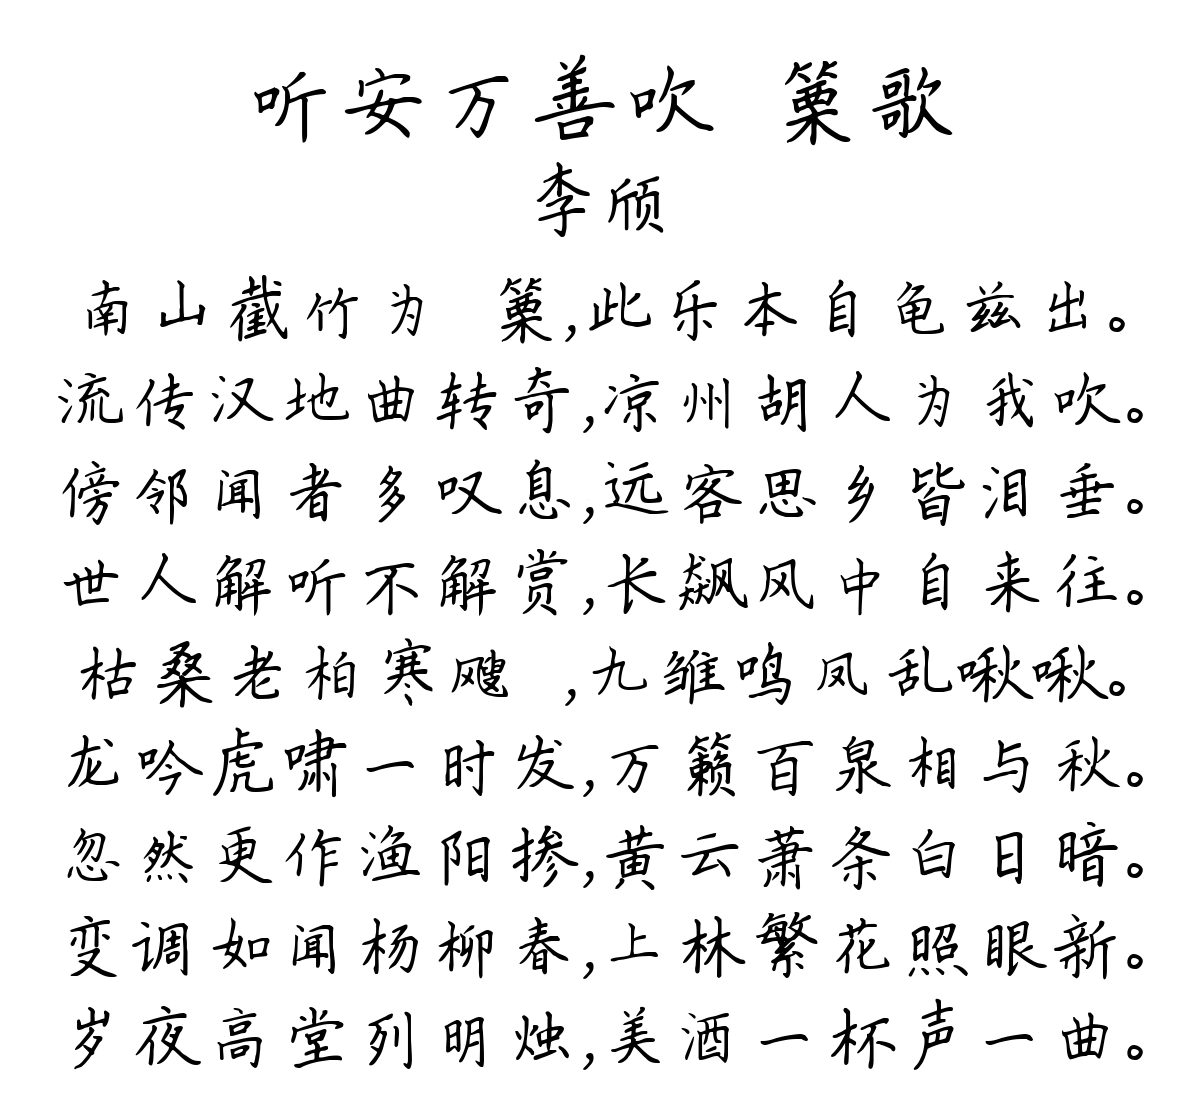 听安万善吹 篥歌
李颀
南山截竹为 篥,此乐本自龟兹出。
流传汉地曲转奇,凉州胡人为我吹。
傍邻闻者多叹息,远客思乡皆泪垂。
世人解听不解赏,长飙风中自来往。
枯桑老柏寒飕 ,九雏鸣凤乱啾啾。
龙吟虎啸一时发,万籁百泉相与秋。
忽然更作渔阳掺,黄云萧条白日暗。
变调如闻杨柳春,上林繁花照眼新。
岁夜高堂列明烛,美酒一杯声一曲。